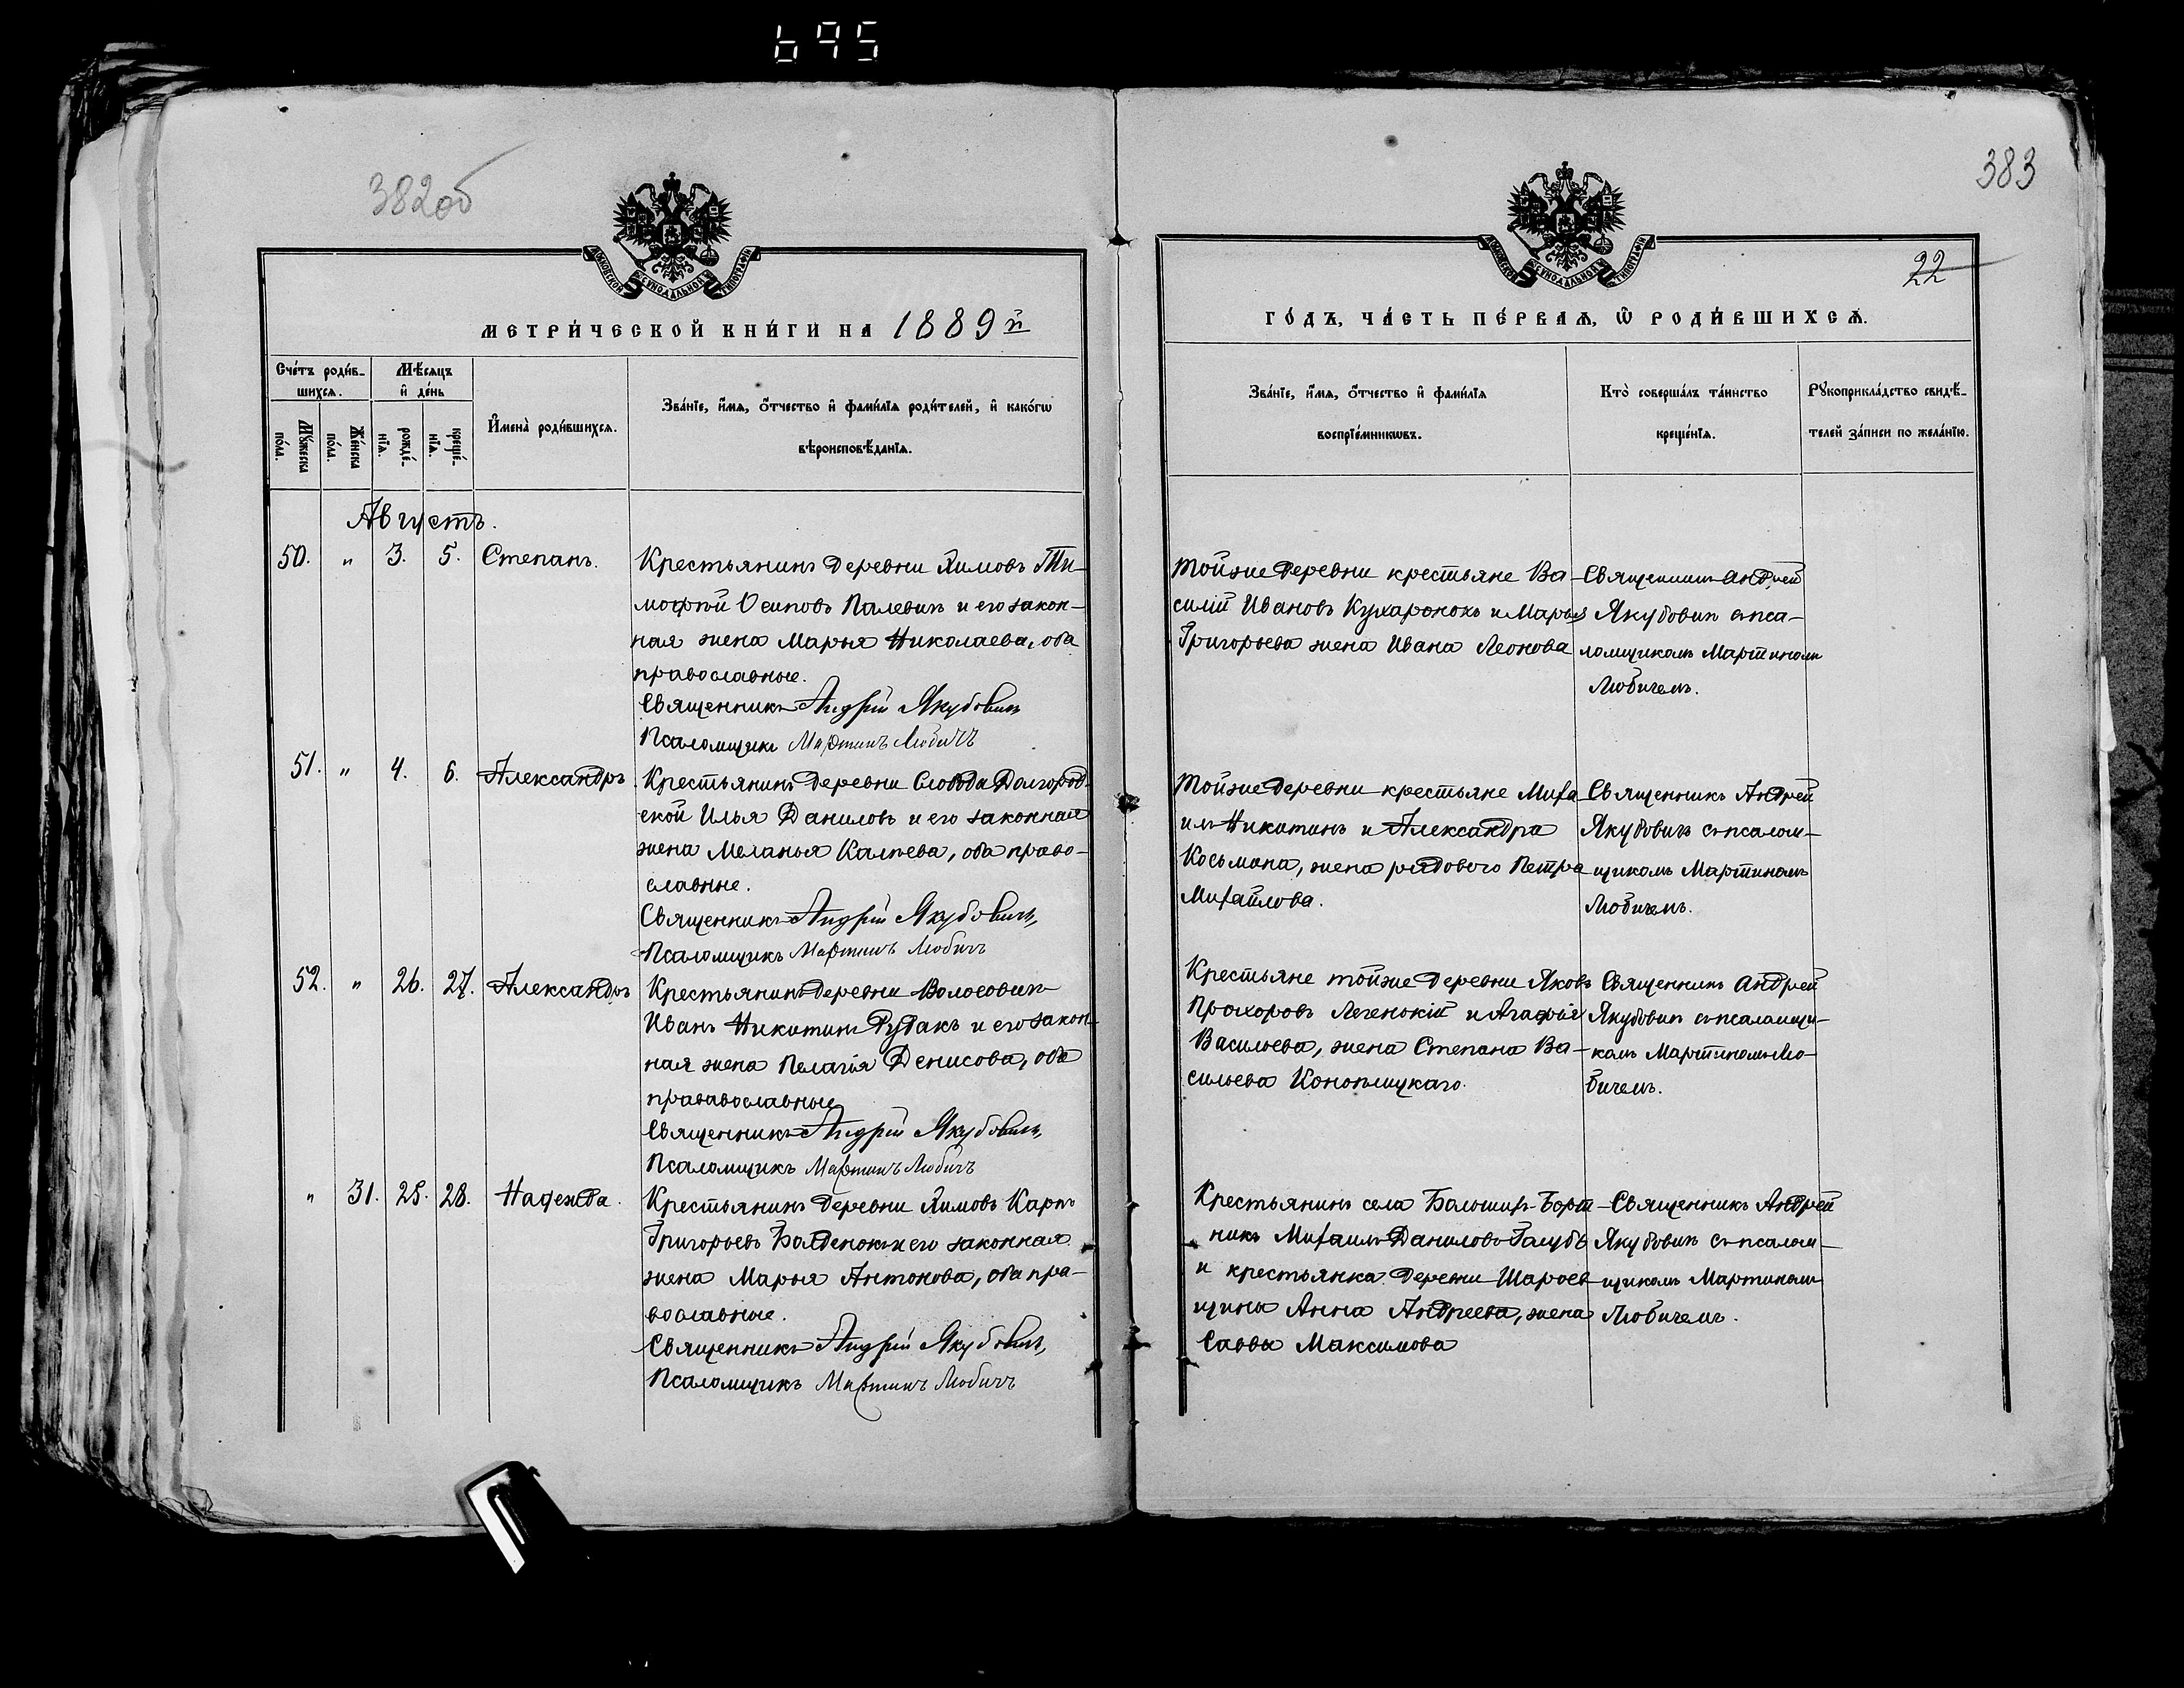 695
382об
383
22
МОСКОВСКОЙ СѴНОДАЛЬНОЙ ТИПОГРАФІИ
МОСКОВСКОЙ СѴНОДАЛЬНОЙ ТИПОГРАФІИ
МЕТРИ́ЧЕСКОЙ КНИ́ГИ НА 1889й
ГО́ДЪ, ЧА́СТЬ ПЕ́РВАѦ, Ѽ РОДИ́ВШИХСѦ.
Сче́тъ роди́в-
шихсѧ.
Мѣ́сѧцъ
и҆ де́нь
Мꙋ́жеска
по́ла.
Же́нска
по́ла.
рожде́-
нїѧ.
креще́-
нїѧ.
И҆мена̀ роди́вшихсѧ.
Зва́нїе, и҆́мѧ, ѻ҆́тчество и҆ фами́лїѧ роди́телей, и҆ како́гѡ
вѣроисповѣ́данїѧ.
Зва́нїе, и҆́мѧ, ѻ҆́тчество и҆ фами́лїѧ
воспрїе́мникѡвъ.
Кто̀ соверша́лъ та́инство
креще́нїѧ.
Рꙋкоприкла́дство свидѣ́-
телей за́писи по жела́нїю.
Августъ.
50. " 3. 5. Степанъ.
Крестьянинъ деревни Якимовъ Ти-
мофѣй Осиповъ Палевичъ и его закон-
ная жена Марья Николаева, оба
православные.
Священникъ Андрей Якубовичъ
Псаломщикъ Мартинъ Любичъ
Тойже деревни крестьяне Ва-
силій Ивановъ Кухаронокъ и Марья
Григорьева жена Ивана Леонова
Священникъ Андрей
Якубовичъ съ пса-
ломщикомъ Мартиномъ
Любичемъ.
51. " 4. 6. Александръ
Крестьянинъ деревни Слобода Долгород-
ской Илья Даниловъ и его законная
жена Меланья Калѣева, оба право-
славные.
Священникъ Андрей Якубовичъ,
Псаломщикъ Мартинъ Любичъ
Тойже деревни крестьяне Миха-
илъ Никитинъ и Александра
Косьмина, жена рядового Петра
Михайлова.
Священникъ Андрей
Якубовичъ съ псалом-
щикомъ Мартиномъ
Любичемъ.
52. " 26. 27. Александръ
Крестьянинъ деревни Волосовичъ
Иванъ Никитинъ Рудакъ и его закон-
ная жена Пелагія Денисова, оба
прававославные
Священникъ Андрей Якубовичъ,
Псаломщикъ Мартинъ Любичъ
Крестьяне тойже деревни Яковъ
Прохоровъ Леченокій и Агафія
Васильева, жена Степана Ва-
сильева Коноплицкаго.
Священникъ Андрей
Якубовичъ съ псаломщи-
комъ Мартиномъ Лю-
бичемъ.
" 31. 25. 28. Надежда.
Крестьянинъ деревни Якимовъ Карпъ
Григорьевъ Болденокъ и его законная
жена Марья Антонова, оба пра-
вославные.
Священникъ Андрей Якубовичъ,
Псаломщикъ Мартинъ Любичъ
Крестьянинъ села Большихъ-Борт-
никъ Михаилъ Даниловъ Голубъ
и крестьянка деревни Шароев-
щины Анна Андреева, жена
Саввы Максимова
Священникъ Андрей
Якубовичъ съ псалом-
щикомъ Мартиномъ
Любичемъ.